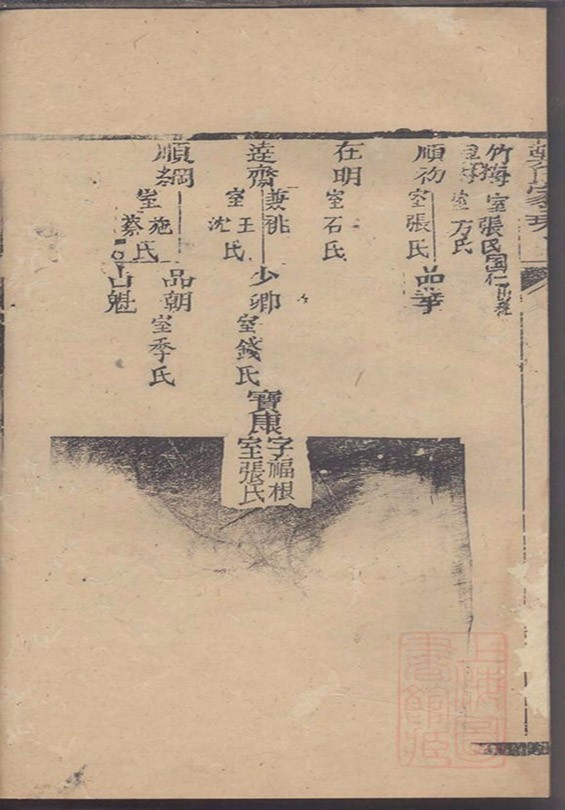 竹梅 室張氏
室方氏
順初 室張氏 品華
在明 室石氏
達齋 兼祧 室王氏 沈氏
少卿 室錢氏
寶康 字福根 室張氏
順綱 室施氏 蔡氏
品朝 室季氏
品魁